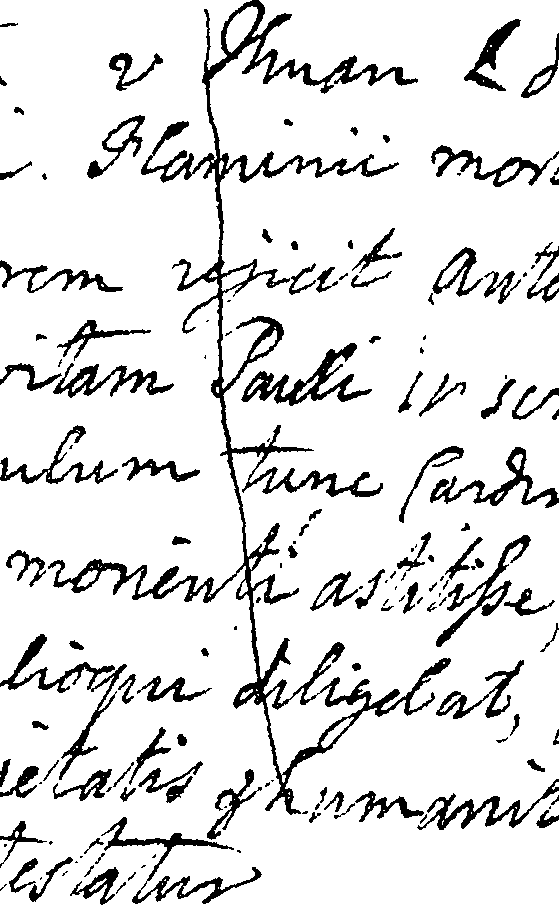 v Thuan L
Flaminii mor
rem rejicit auto
vitam Pauli in scr
ulum tunc Cardin
morienti astitisse,
lioqui diligebat,
ietatis & humanit
testatur